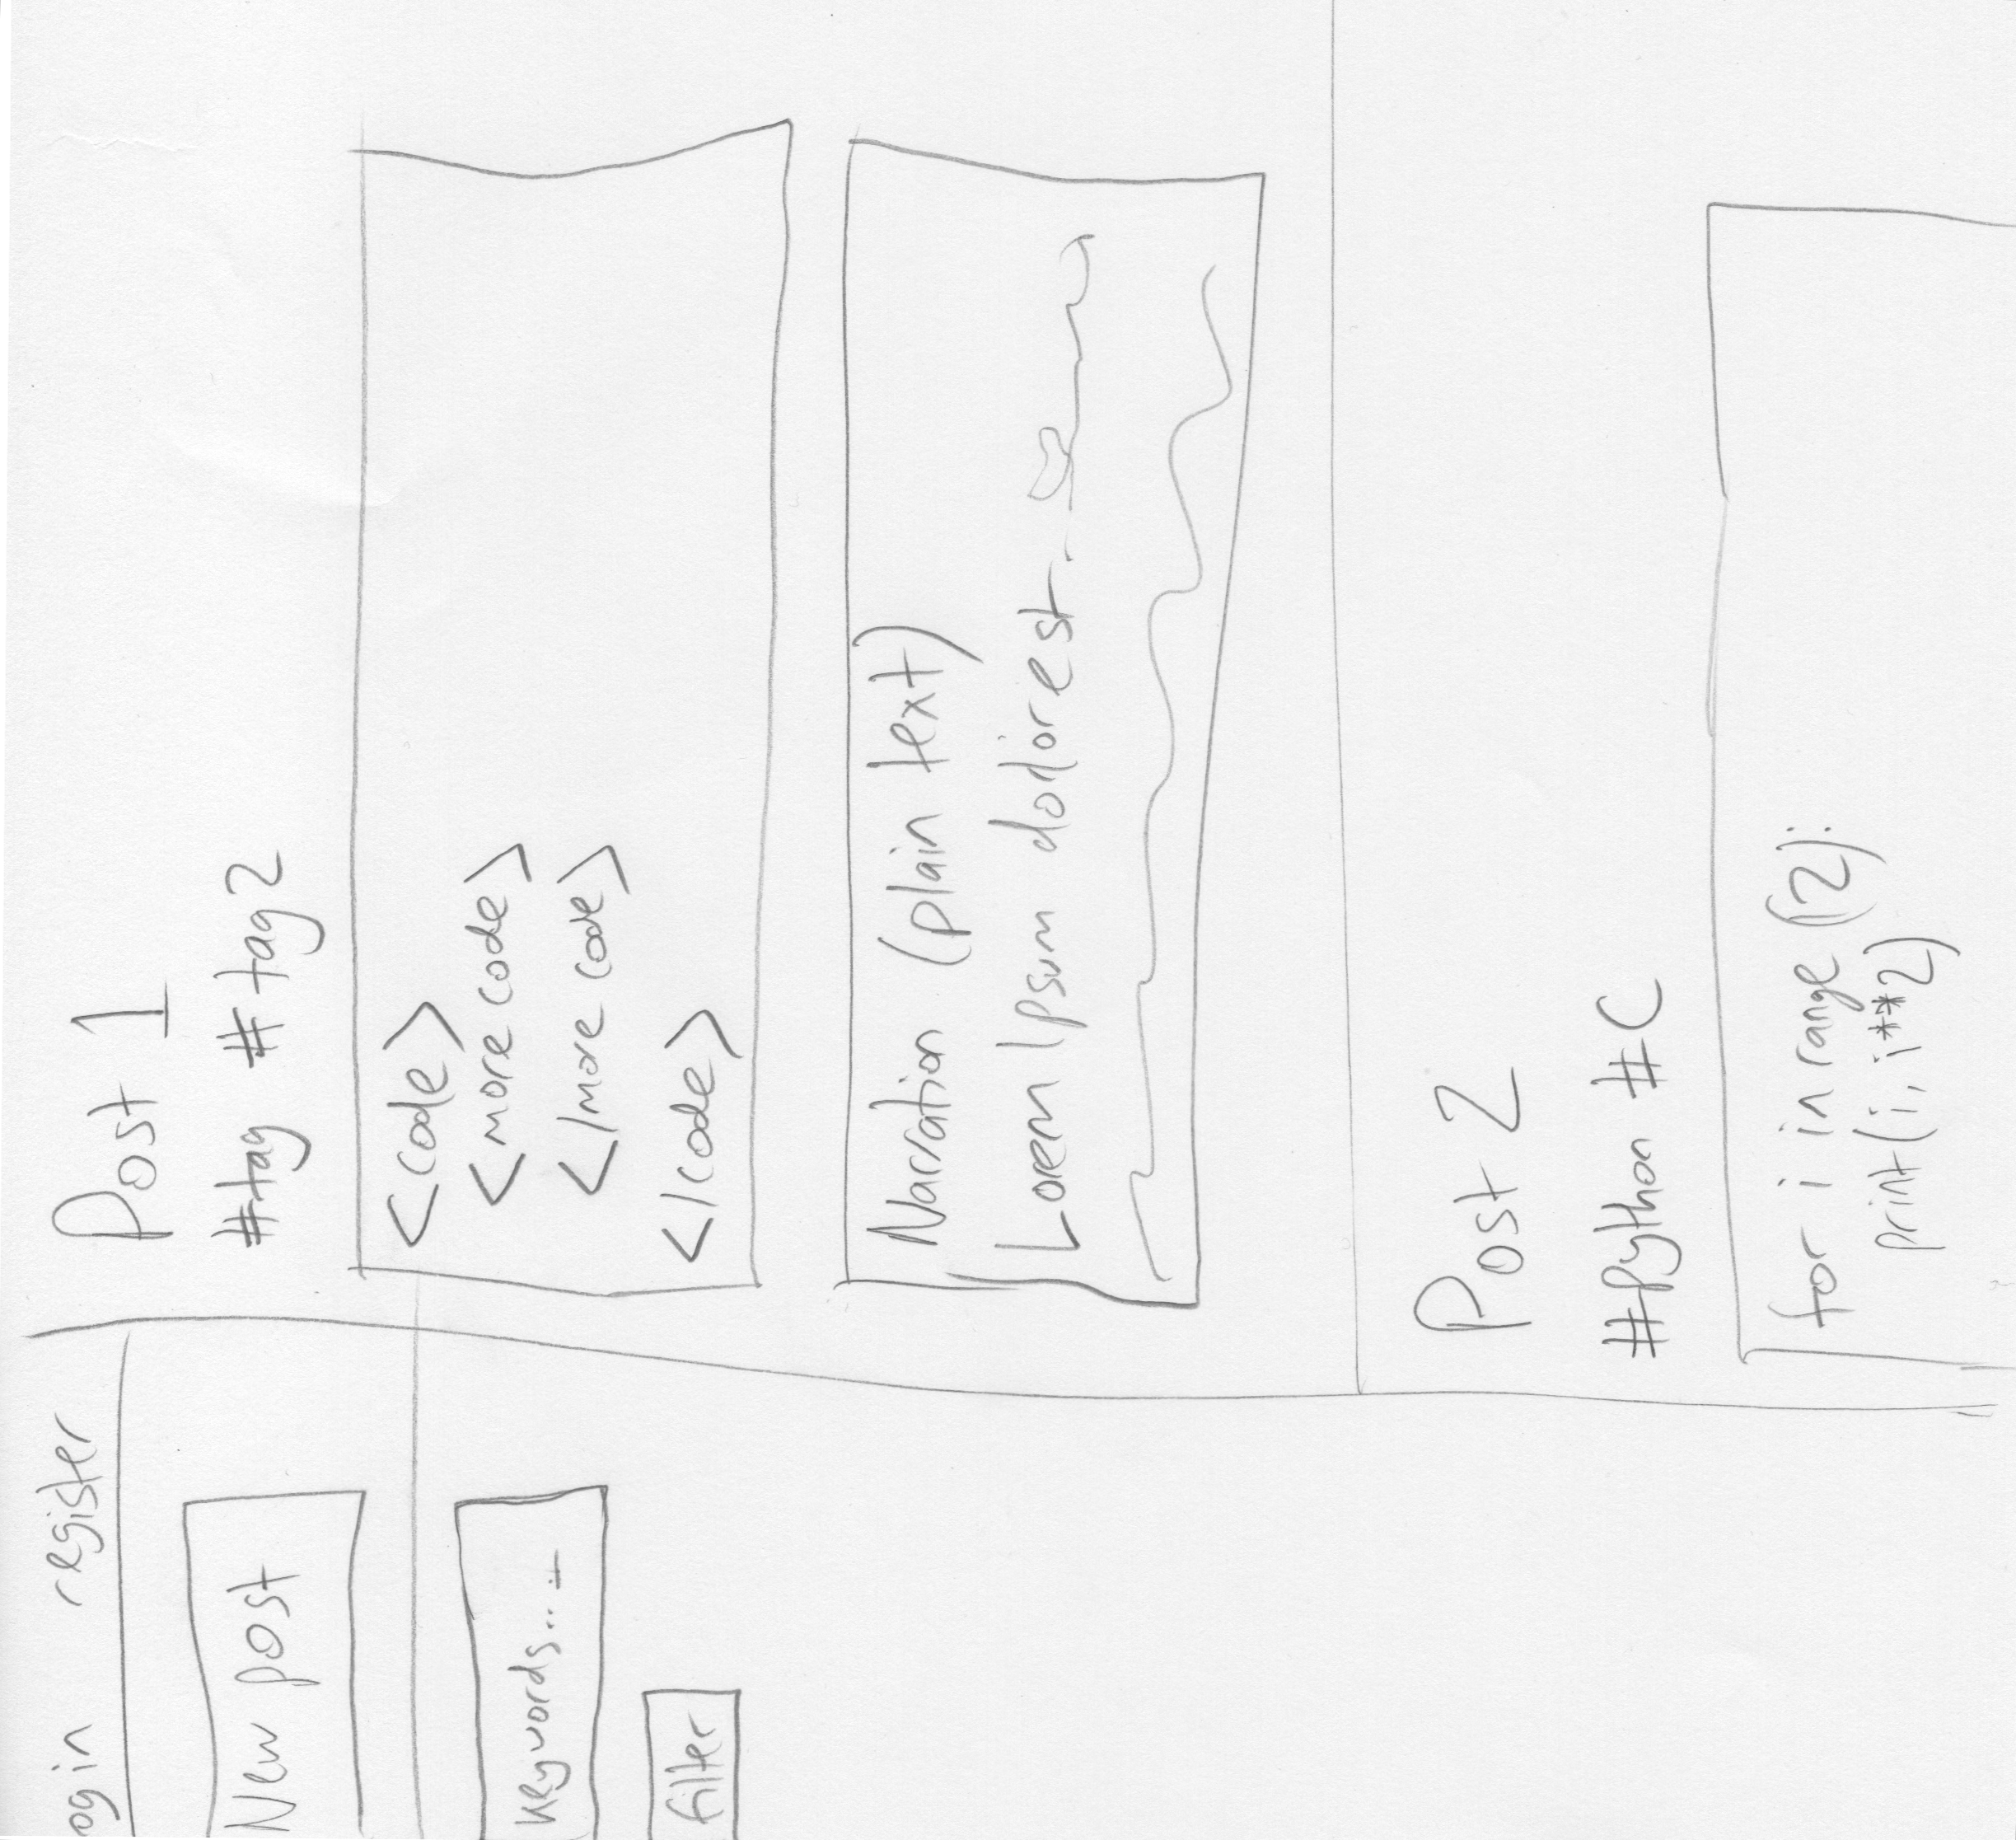 ogin register
New post
keywords...
filter
Post 1
#tag #tag2
<code>
<more code>
</more code>
</code>
Narration (plain text)
Lorem Ipsum doliorest.
Post 2
#python #C
for i in range (12):
print(i, i**2)